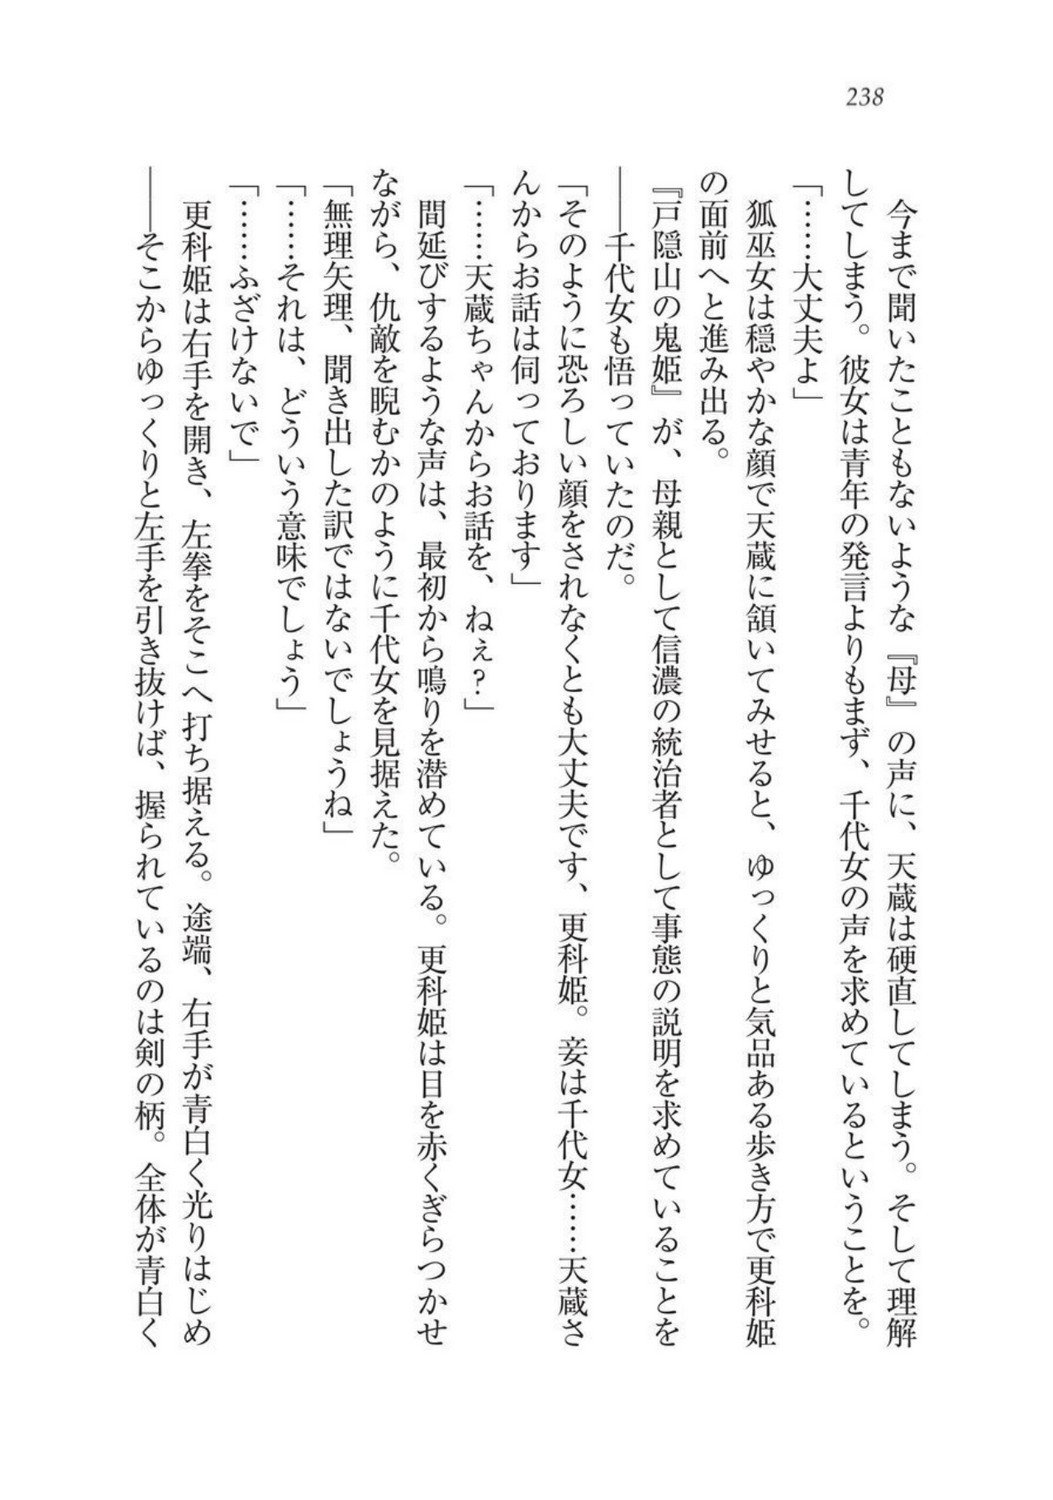 238
　今まで聞いたこともないような『母』の声に、天蔵は硬直してしまう。そして理解
してしまう。彼女は青年の発言よりもまず、千代女の声を求めているということを。
「……大丈夫よ」
　狐巫女は穏やかな顔で天蔵に頷いてみせると、ゆっくりと気品ある歩き方で更科姫
の面前へと進み出る。
『戸隠山の鬼姫』が、母親として信濃の統治者として事態の説明を求めていることを
――千代女も悟っていたのだ。
「そのように恐ろしい顔をされなくとも大丈夫です、更科姫。妾は千代女……天蔵さ
んからお話は伺っております」
「……天蔵ちゃんからお話を、ねぇ？」
　間延びするような声は、最初から鳴りを潜めている。更科姫は目を赤くぎらつかせ
ながら、仇敵を睨むかのように千代女を見据えた。
「無理矢理、聞き出した訳ではないでしょうね」
「……それは、どういう意味でしょう」
「……ふざけないで」
　更科姫は右手を開き、左拳をそこへ打ち据える。途端、右手が青白く光りはじめ
――そこからゆっくりと左手を引き抜けば、握られているのは剣の柄。全体が青白く